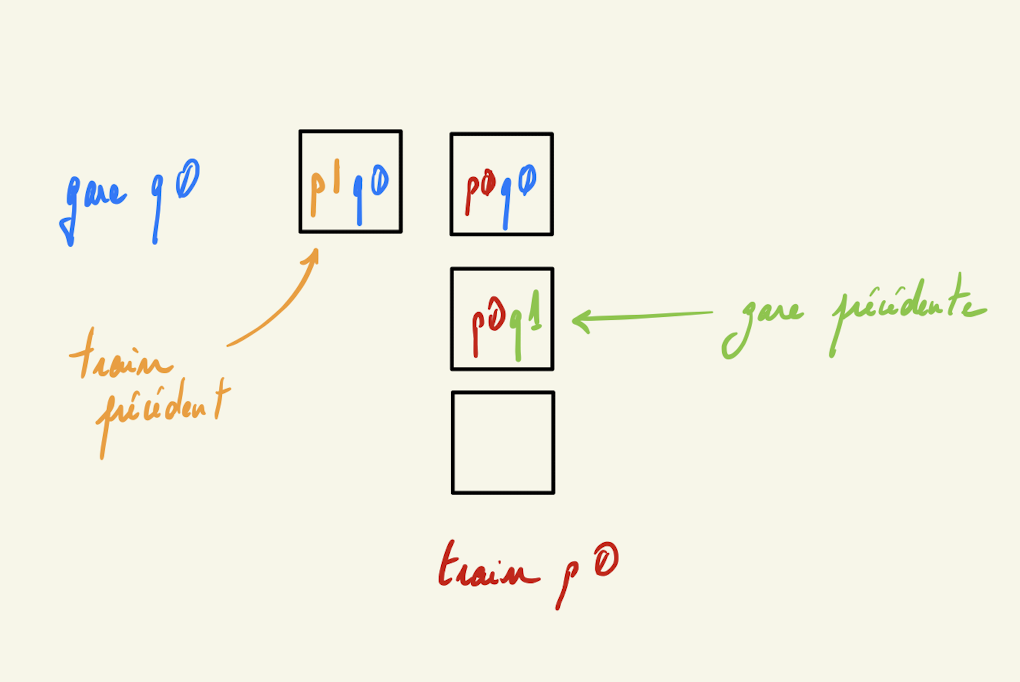 gare q0
p1q0
p0q0
p0q1
gare précédente
train
précédent
train p0